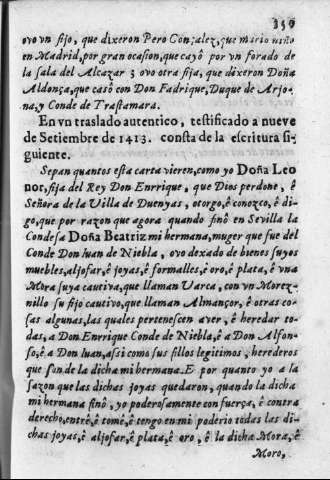 350
ovo vn fijo, que dixeron Pero Gonçalez, que murio niño
en Madrid, por gran ocasion, que cayô por vn forado de
la sala del Alcazar 3 ovo otra fija, que dixeron Doña
Aldonça, que casô con Don Fadrique, Duque de Arjo-
na, y Conde de Trastamara.
En vn traslado autentico, testificado a nueve
de Setiembre de 1413. consta de la escritura si-
guiente.
Sepan quantos esta carta vieren, como yo Doña Leo
nor, fija del Rey Don Enrrique, que Dios perdone, ê
Señora de la Villa de Duenyas, otorgo, ê conozco, ê di-
go, que por razon que agora quando finô en Sevilla la
Condesa Doña Beatriz mi hermana, muger que fue del
Conde Don Iuan de Niebla, ovo dexado de bienes suyos
muebles, aljofar, ê joyas, ê formalles, ê oro, ê plata, ê vna
Mora suya cautiva, que llaman Varca, con vn Morez-
nillo su fijo cautivo, que llaman Almançor, ê otras co-
sas algunas, las quales pertenescen aver, ê heredar to-
das, a Don Enrrique Conde de Niebla, ê a Don Alfon-
so, ê a Don Iuan, assi como sus fillos legitimos, herederos
que son de la dicha mi hermana. E por quanto yo a la
sazon que las dichas joyas quedaron, quando la dicha
mi hermana finô, yo poderosamente con fuerça, ê contra
derecho, entrê, ê tomê, ê tengo en mi poderio todas las di-
chas joyas, ê aljofar, ê plata, ê oro, ê la dicha Mora, ê
Moro,